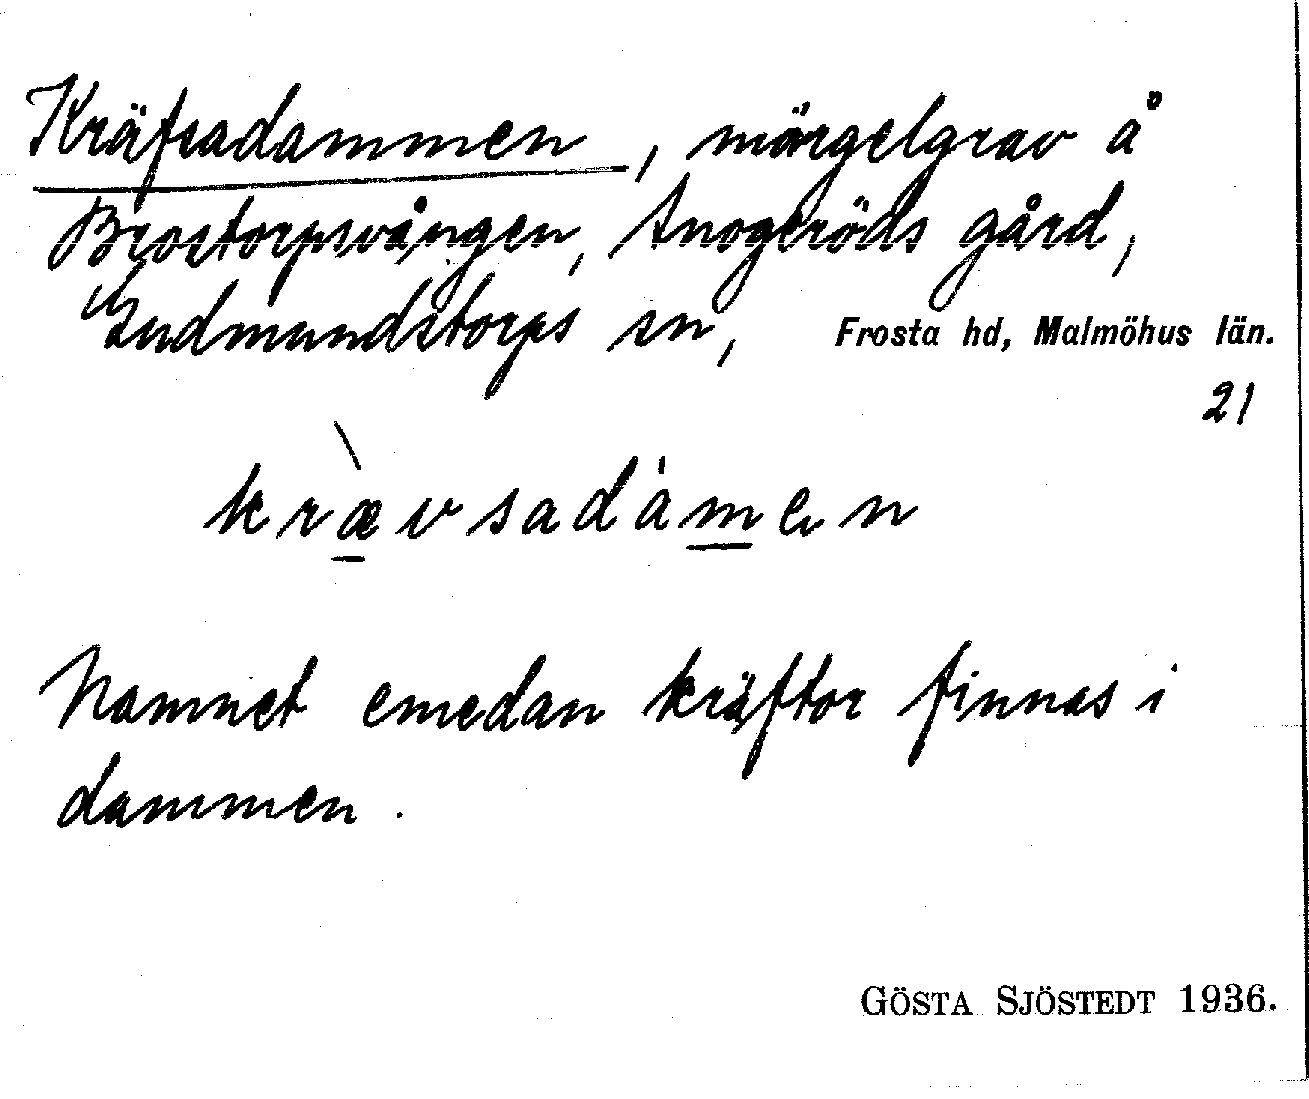 Kräfsadammen, märgelgrav å
Brostorpsvången, Anogeröds gård,
Gudmundstorps sn, Frosta hd, Malmöhus län.
21
kræ̀vsadàmen
Namnet emedan kräftor finnas i
dammen.
GÖSTA SJÖSTEDT 1936.